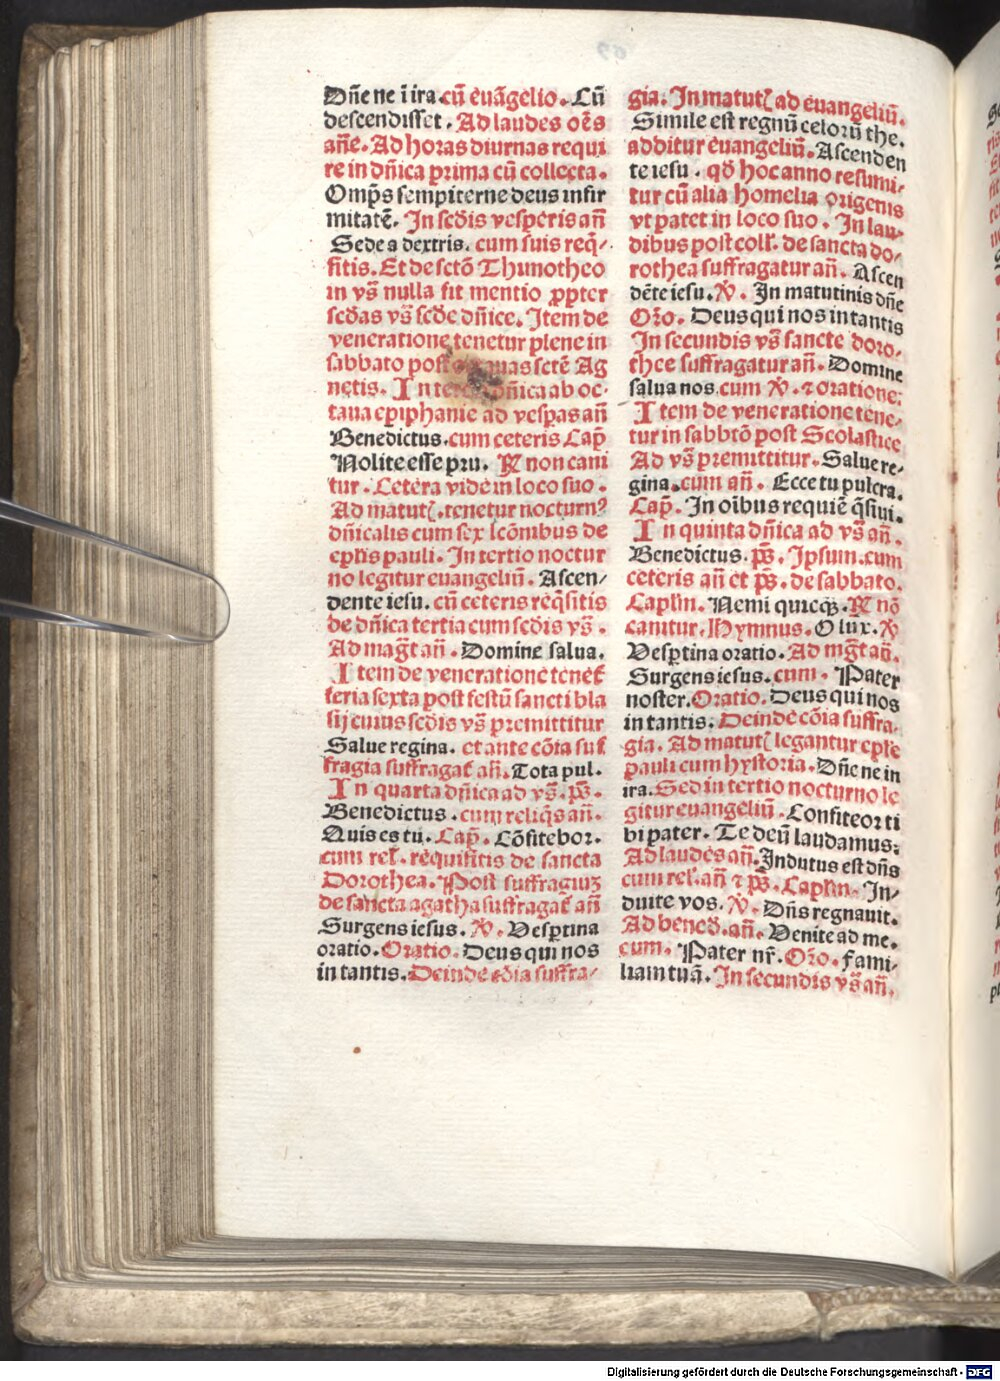 Dñe ne ĩ ira. cũ euãgelio. Cũ
descendisset. Ad laudes oẽs
añe. Ad horas diurnas requi
re in dñica prima cũ collecta.
Omp̃s sempiterne deus infir
mitatẽ. In scďis vesperis añ
Sede a dextris. cum suis req̃-
sitis. Et de sctõ Thimotheo
in vs̃ nulla fit mentio ꝓpter
scďas vs̃ scďe dñice. Item de
veneratione tenetur plene in
sabbato post sctẽ Ag
netis. In dñica ab oc-
taua epiphanie ad vesp̃as añ
Benedictus. cum ceteris Cap̃
Nolite esse pru. R̃ non cani
tur. Cetera vide in loco suo.
Ad matut̃. tenetur nocturnꝰ
dñicalis cum sex lcõnibus de
ep̃lis pauli. In tertio noctur
no legitur euangeliũ. Ascen/
dente iesu. cũ ceteris req̃sitis
de dñica tertia cum scďis vs̃.
Ad mag̃t añ. Domine salua.
Item de veneratione tenet̃
feria sexta post festũ sancti bla
sij cuius scďis vs̃ premittitur
Salue regina. et ante cõia suf
fragia suffragat̃ añ. Tota pul.
In quarta dñica ad vs̃. p̃s.
Benedictus. cum reliq̃s añ.
Quis es tu. Cap̃. Cõfitebor.
cum rel̃. requisitis de sancta
Dorothea. Post suffragiuȝ
de sancta agatha suffragat̃ añ
Surgens iesus. ỹ. Vesp̃tina
oratio. Oratio. Deus qui nos
in tantis. Deinde cõia suffra/
gia. In matut̃ ad euangeliũ.
Simile est regnũ celorũ the.
additur euangeliũ. Ascenden
te iesu. qď hoc anno resumi/
tur cũ alia homelia origenis
vt patet in loco suo. In lau-
dibus post coll̃. de sancta do/
rothea suffragatur añ. Ascen
dẽte iesu. ỹ. In matutinis dñe
Oro. Deus qui nos in tantis
In secundis vs̃ sancte doro/
thee suffragatur añ. Domine
salua nos. cum ỹ. ⁊ oratione.
Item de veneratione tene/
tur in sabbtõ post Scolastice
Ad vs̃ premittitur. Salue re/
gina. cum añ. Ecce tu pulcra.
Cap̃. In oĩbus requiẽ q̃siui.
In quinta dñica ad vs̃ añ.
Benedictus. p̃s. Ipsum. cum
ceteris añ et p̃s. de sabbato.
Caplm̃. Nemi quicq̃. R̃ nõ
canitur. Hymnus. O lux. ỹ
Vesp̃tina oratio. Ad mg̃t añ.
Surgens iesus. cum. Pater
noster. Oratio. Deus qui nos
in tantis. Deinde cõia suffra/
gia. Ad matut̃ legantur ep̃le
pauli cum hystoria. Dñe ne in
ira. Sed in tertio nocturno le
gitur euangeliũ. Confiteor ti
bi pater. Te deũ laudamus.
Ad laudes añ. Indutus est dñs
cum rel̃. añ ⁊ p̃s. Caplm̃. In/
duite vos. ỹ. Dñs regnauit.
Ad beneď. añ. Venite ad me.
cum. Pater nr̃. Oro. fami/
liam tuã. In secundis vs̃ añ.
Digitalisierung gefördert durch die Deutsche Forschungsgemeinschaft - DFG